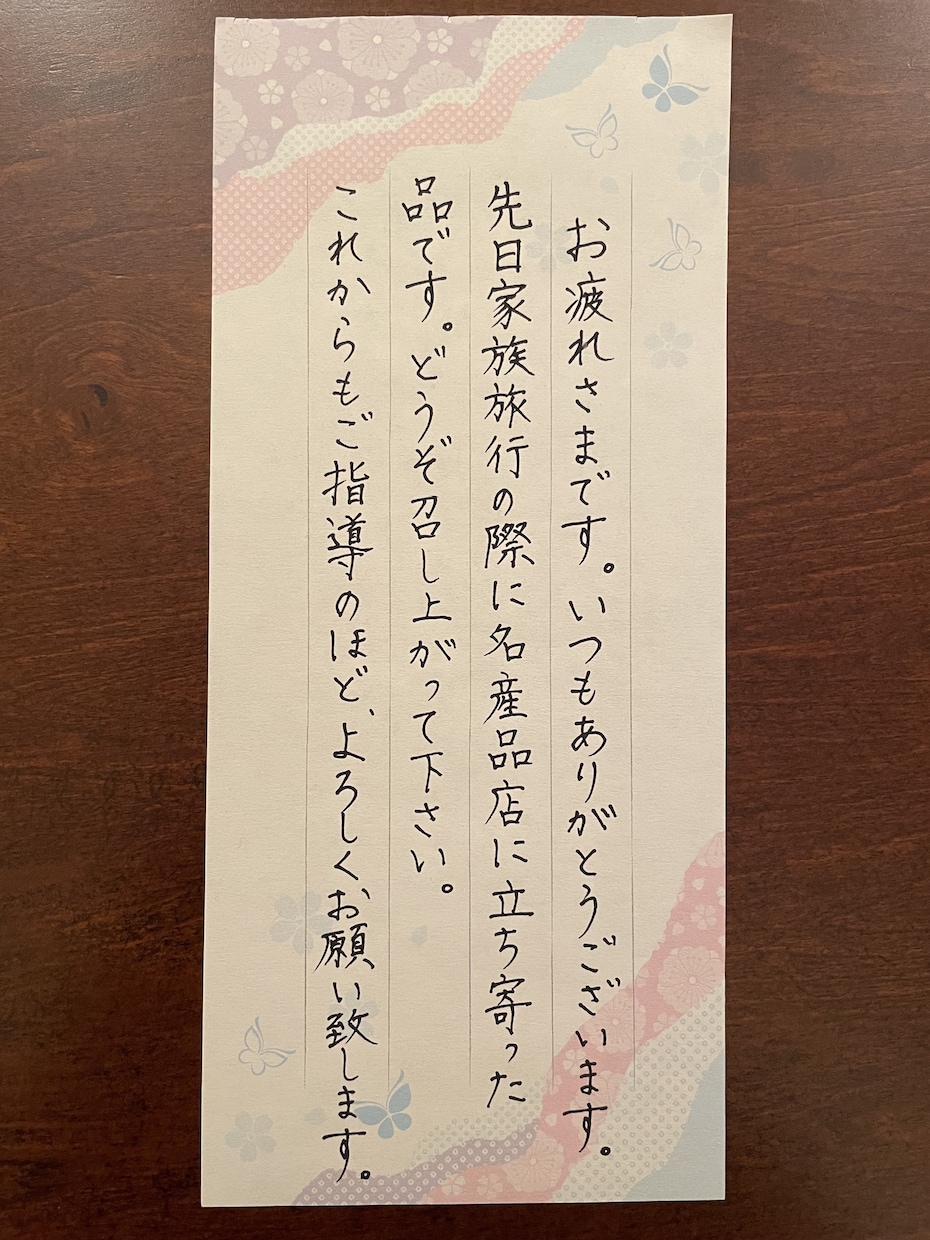 お疲れさまです。いつもありがとうございます。
先日家族旅行の際に名産品店に立ち寄った
品です。どうぞ召し上がって下さい。
これからもご指導のほど、よろしくお願い致します。